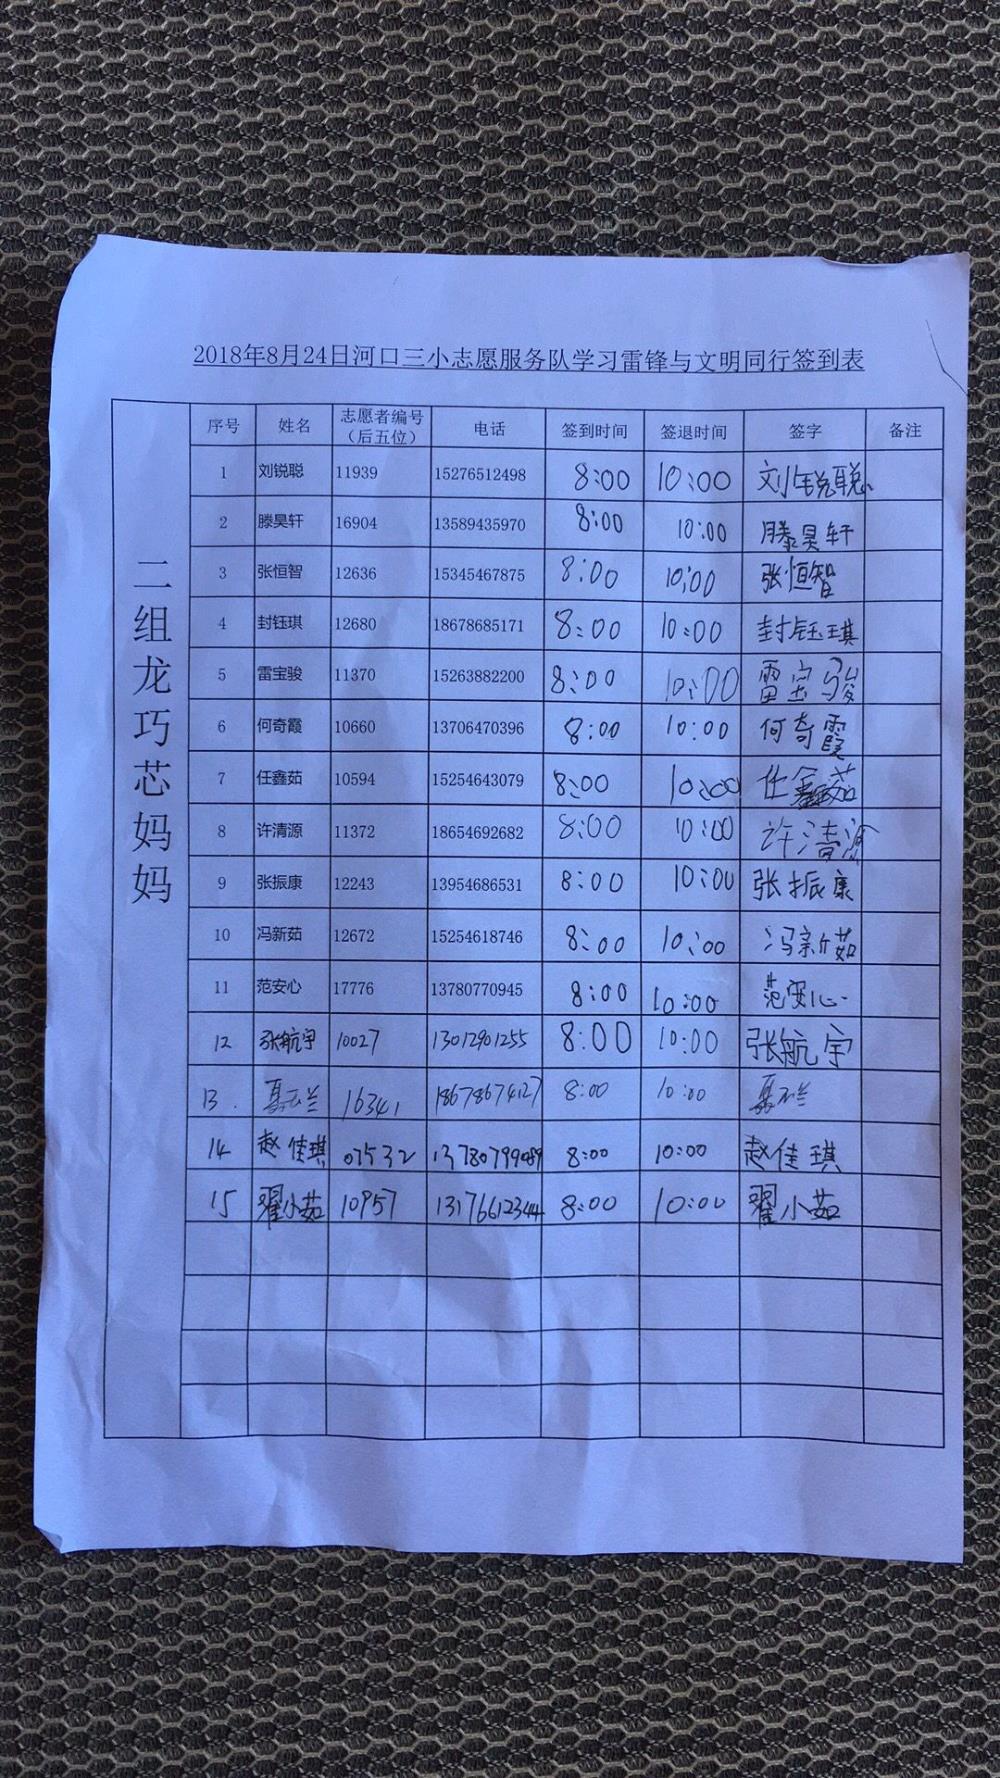 2018年8月24日河口三小志愿服务队学习雷锋与文明同行签到表
二组龙巧芯妈妈
序号 姓名 志愿者编号（后五位） 电话 签到时间 签退时间 签字 备注
1 刘锐聪 11939 15276512498 8:00 10:00 刘锐聪
2 滕昊轩 16904 13589435970 8:00 10:00 滕昊轩
3 张恒智 12636 15345467875 8:00 10:00 张恒智
4 封钰琪 12680 18678685171 8:00 10:00 封钰琪
5 雷宝骏 11370 15263882200 8:00 10:00 雷宝骏
6 何奇霞 10660 13706470396 8:00 10:00 何奇霞
7 任鑫茹 10594 15254643079 8:00 10:00 任鑫茹
8 许清源 11372 18654692682 8:00 10:00 许清源
9 张振康 12243 13954686531 8:00 10:00 张振康
10 冯新茹 12672 15254618746 8:00 10:00 冯新茹
11 范安心 17776 13780770945 8:00 10:00 范安心
12 张航宇 10027 13012901255 8:00 10:00 张航宇
13. 16341 18678674127 8:00 10:00
14 赵佳琪 07532 8:00 10:00 赵佳琪
15 翟小茹 10957 13176612344 8:00 10:00 翟小茹